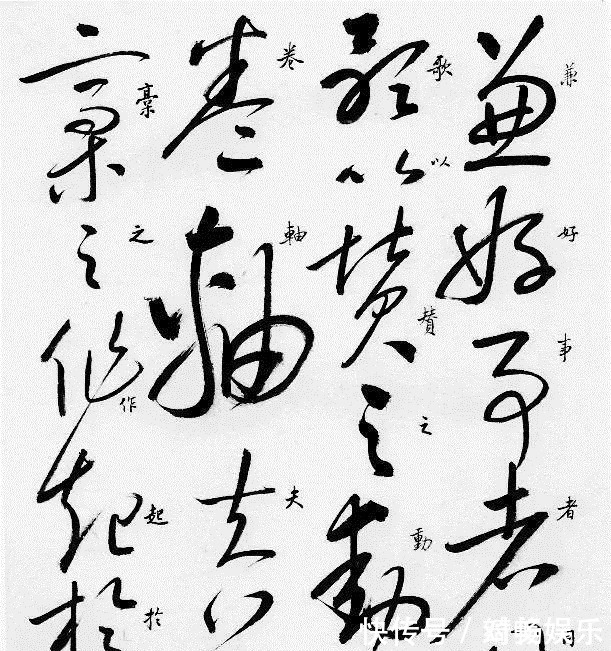 兼好事者
歌以贊之動
卷軸夫
藁之作起於
快传号 / 娱乐